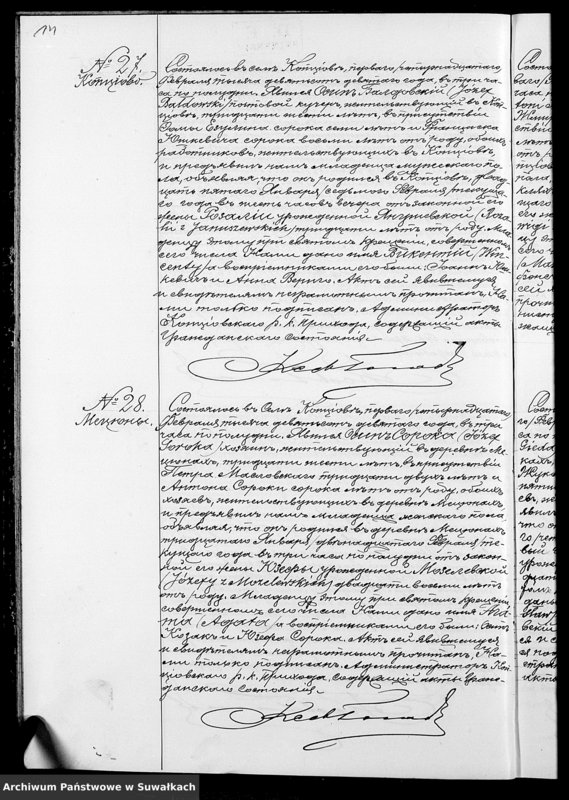 14
№ 27.
Копціово.
Состоялось въ селѣ Копціовѣ, перваго/четырнадцатаго
Февраля тысяча девятьсотъ девятаго года, въ три ча-
са по полудни. Явился Осипъ Балдовскій /Józef
Bałdowski/ почтовой кучеръ, жительствующій въ Коп-
ціовѣ, тридцати шести лѣтъ, въ присутствіи
сорока семи лѣтъ и Франциска
Юшкевича сорока восьми лѣтъ отъ роду, обоихъ
работниковъ, жительствующихъ въ Копціовѣ,
и предъявилъ намъ младенца мужескаго по-
ла, объявляя, что онъ родился въ Копціовѣ, двад-
цать пятаго Января/седьмаго Февраля текуща-
го года въ пять часовъ вечера отъ законной его
жены Розаліи урожденной Янушевской /Roza-
lii z Januszewskich/ тридцати лѣтъ отъ роду. Мла-
денцу этому при святомъ крещеніи, совершенномъ
сего числа Нами дано имя Викентій /Win-
centy/ а воспріемниками его были: Іоаннъ Юш-
кевичъ и Анна Верцго. Актъ сей явившемуся
и свидѣтелямъ неграмотнымъ прочитанъ, На-
ми только подписанъ. Администраторъ
Копціовскаго р. к. прихода, содержащій акты
гражданскаго состоянія.
№ 28.
Мецюны.
Состоялось въ Селѣ Копціовѣ, перваго/четырнадцатаго
Февраля тысяча девятьсотъ девятаго года, въ три
часа по полудни. Явился Осипъ Сорока /Józef
Soroka/ хозяинъ, жительствующій въ деревнѣ Ме-
цюнахъ, тридцати шести лѣтъ, въ присутствіи
Петра Масловскаго тридцати двухъ лѣтъ и
Антона Сороки сорока лѣтъ отъ роду, обоихъ
хозяевъ, жительствующихъ въ деревнѣ Мецюнахъ
и предъявилъ намъ младенца женскаго пола
объявляя, что онъ родился въ деревнѣ Мецюнахъ
тридцатаго Января/двѣнадцатаго Февраля те-
кущаго года въ три часа по полудни отъ закон-
ной его жены Юзефы урожденной Мозелевской
/Józefy z Mozelewskich/ двадцати восьми лѣтъ
отъ роду. Младенцу этому при святомъ крещеніи,
совершенномъ сего числа Нами дано имя Ага-
та /Agata/ а воспріемниками его были: Осипъ
Козакъ и Юзефа Сорока. Актъ сей явившемуся
и свидѣтелямъ неграмотнымъ прочитанъ, На-
ми только подписанъ. Администраторъ Коп-
ціовскаго р. к. прихода, содержащій акты граж-
данскаго состоянія.
Archiwum Państwowe w Suwałkach